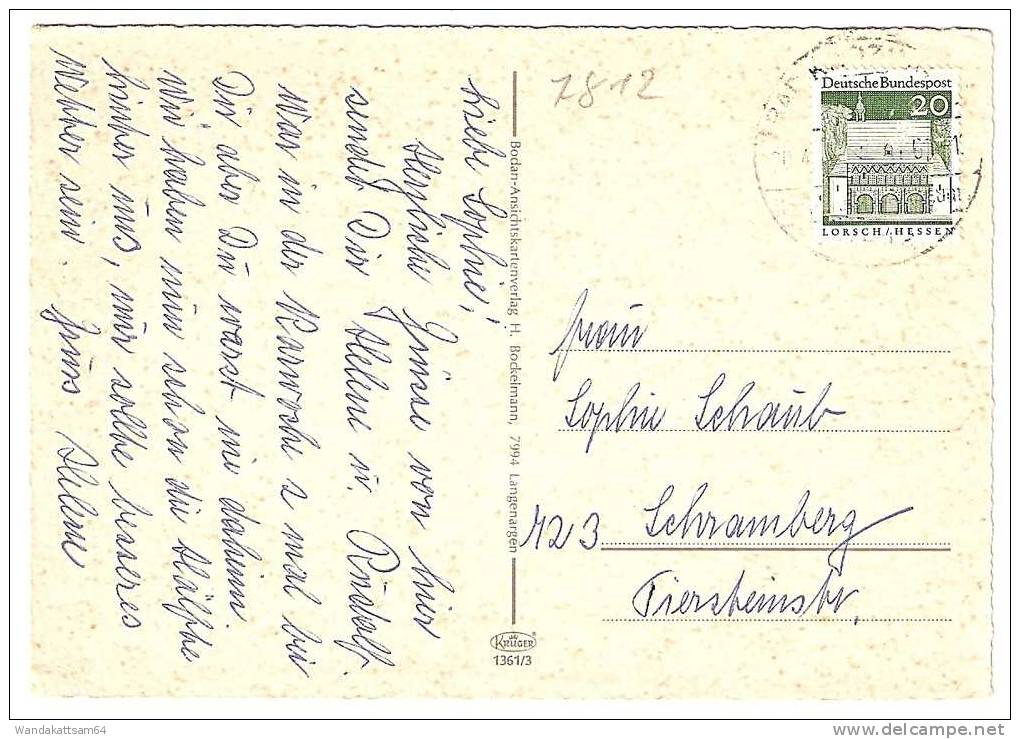 Liebe Sophie!
Herzliche Grüsse von hier
sendet Dir Helene u. Rudolf.
War in der Karwoche 2 mal bei
Dir aber Du warst nie daheim.
Wir haben nun schon die Hälfte
hinter uns, nur sollte besseres
Wetter sein. Gruss Helene
Bodan-Ansichtskartenverlag H. Bockelmann, 7994 Langenargen
KRÜGER
1361/3
7812
Deutsche Bundespost
20
LORSCH/HESSEN
Frau
Sophie Schaub
723 Schramberg
Tiersteinstr.
Wandakattsam64
delcampe.net